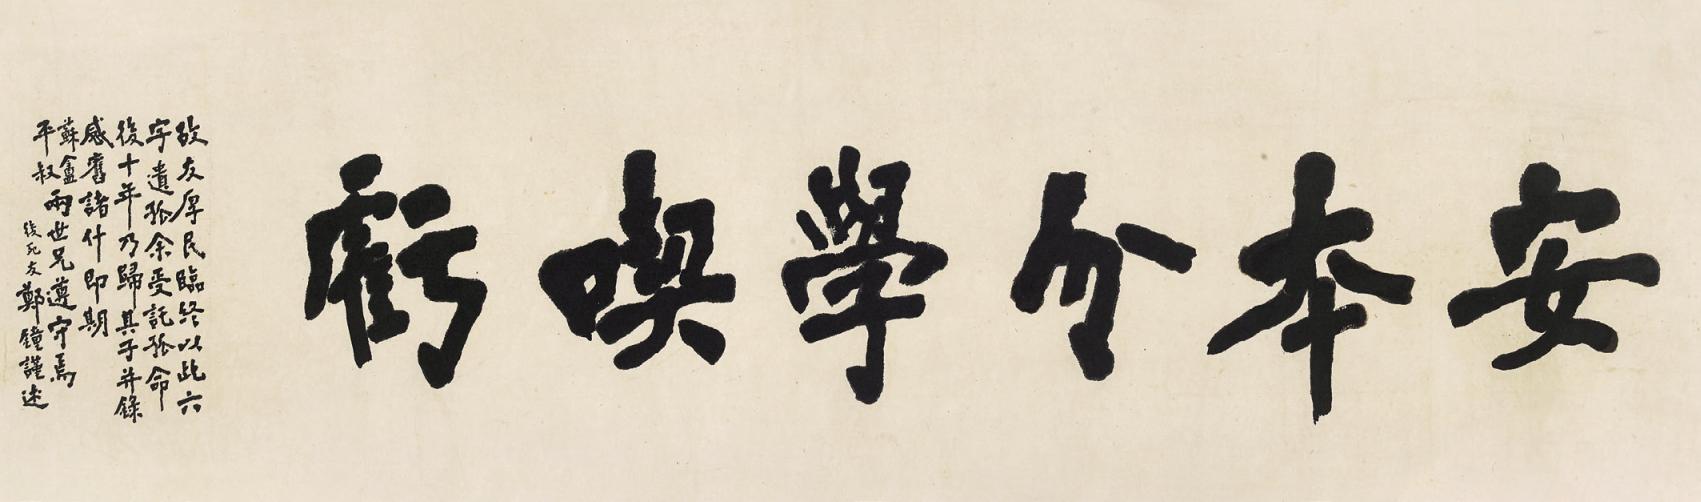 安本分學喫虧
故友厚民臨終以此六
字遺孤余受託孤命
後十年乃歸其子并錄
感舊諸什即期
蘇盦兩世兄遵守焉
平叔
後死友鄭鐘謹述